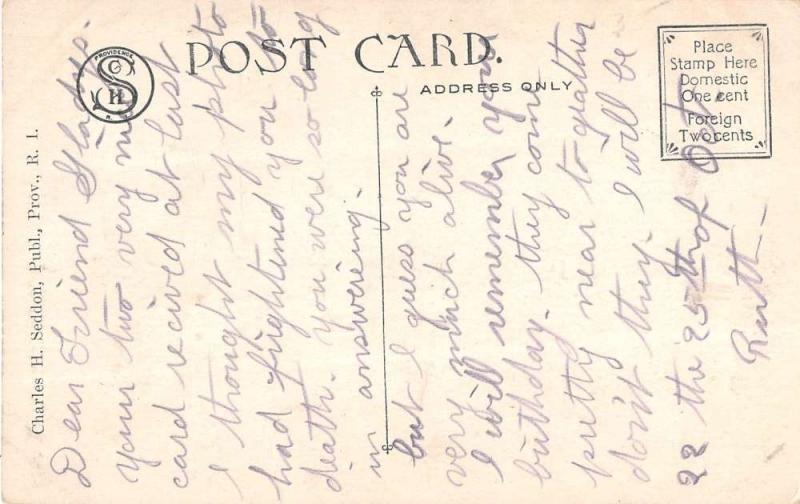 POST CARD.
ADDRESS ONLY
Place
Stamp Here
Domestic
One cent
Foreign
Two cents
PROVIDENCE
S
C H
R. I.
Charles H. Seddon, Publ., Prov., R. I.
Dear Friend Gladys.
Your two very nice
card recived at last
I thought my photo
had frightened you to
death. you were so long
in answering.
but I guess you are
very much alive.
I will remember your
birthday. they come
pretty near to gather
don't they. I will be
22 the 25th of Oct.
Ruth-